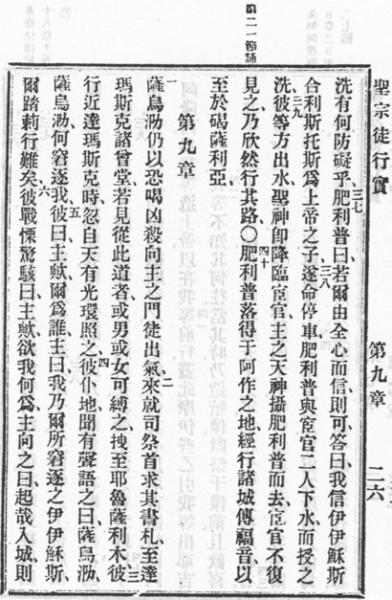 聖宗徒行實 第九章 二六
洗有何防礙乎三七肥利普曰若爾由全心而信則可答曰我信伊伊穌斯
合利斯托斯為上帝之子三八遂命停車肥利普與宦官二人下水而授之
洗三九彼等方出水聖神即降臨宦官主之天神攝肥利普而去宦官不復
見之乃欣然行其路〇四十肥利普落得于阿作之地經行諸城傳福音以
至於碣薩利亞
第九章
一薩烏泐仍以恐喝凶殺向主之門徒出氣來就司祭首二求其書札至達
瑪斯克諸會堂若見從此道者或男或女可縛之拽至耶魯薩利木三彼
行近達瑪斯克時忽自天有光環照之四彼仆地聞有聲語之曰薩烏泐
薩烏泐何窘逐我五彼曰主歟爾為誰主曰我乃爾所窘逐之伊伊穌斯
爾踏刺行難矣六彼戰慄驚駭曰主歟欲我何為主向之曰起哉入城則